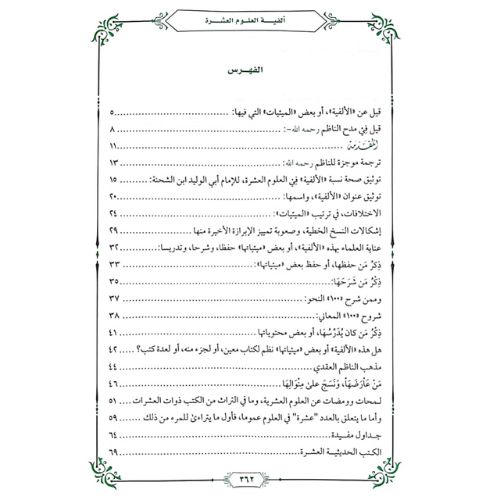 ألفية العلوم العشرة
الفهرس
قيل عن «الألفية»، أو بعض «الميئيات» التي فيها: ٥
قيل في مدح الناظم رحمه الله-: ٨
المقدمة ١١
ترجمة موجزة للناظم رحمه الله: ١٣
توثيق صحة نسبة «الألفية» في العلوم العشرة، للإمام أبي الوليد ابن الشحنة: ١٥
توثيق عنوان «الألفية»، واسمها: ٢٠
الاختلافات، في ترتيب «الميئيات»: ٢٤
إشكالات النسخ الخطية، وصعوبة تمييز الإبرازة الأخيرة منها ٢٩
عناية العلماء بهذه «الألفية»، أو بعض «ميئياتها» حفظا، وشرحا، وتدريسا: ٣٢
ذِكرُ مَن حفظها، أو حفظ بعض «ميئياتها»: ٣٣
ذِكرُ مَن شَرَحَهَا: ٣٥
وممن شرح «١٠٠» النحو: ٣٧
شروح «١٠٠» المعاني: ٣٨
ذِكرُ مَن كان يُدَرِّسُهَا، أو بعض محتوياتها ٤١
هل هذه «الألفية» أو بعض «ميئياتها» نظم لكتاب معين، أو لجزء منه، أو لعدة كتب؟ ٤٢
مذهب الناظم العقدي ٤٤
مَنْ عَارَضَهَا، وَنَسَجَ عَلىٰ مِنْوَالِهَا ٤٦
لمحات وومضات عن العلوم العشرية، وما في التراث من الكتب ذوات العشرات ٥١
وأما ما يتعلق بالعدد "عشرة" في العلوم عموما، فأول ما يتراءىٰ للمرء من ذلك ٥٩
جداول مفيدة ٦٤
الكتب الحديثية العشرة ٦٩
٣٦٢